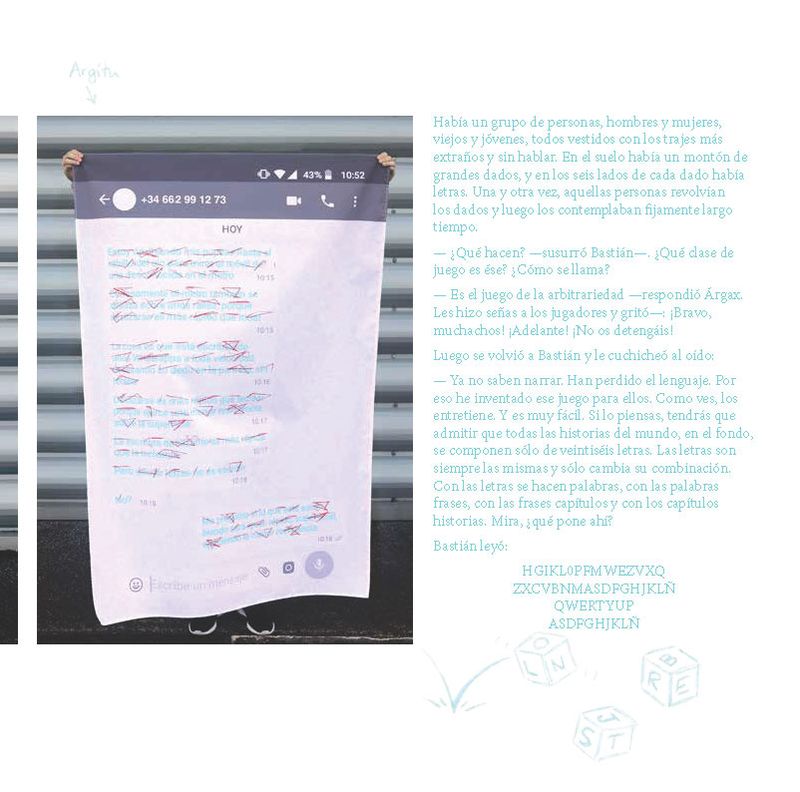 Argitu
43% 10:52
+34 662 99 12 73
HOY
10:15
10:15
10:16
10:17
10:17
10:18
10:18
10:18
Escribe un mensaje
Había un grupo de personas, hombres y mujeres,
viejos y jóvenes, todos vestidos con los trajes más
extraños y sin hablar. En el suelo había un montón de
grandes dados, y en los seis lados de cada dado había
letras. Una y otra vez, aquellas personas revolvían
los dados y luego los contemplaban fijamente largo
tiempo.
— ¿Qué hacen? —susurró Bastián—. ¿Qué clase de
juego es ése? ¿Cómo se llama?
— Es el juego de la arbitrariedad —respondió Árgax.
Les hizo señas a los jugadores y gritó—: ¡Bravo,
muchachos! ¡Adelante! ¡No os detengáis!
Luego se volvió a Bastián y le cuchicheó al oído:
— Ya no saben narrar. Han perdido el lenguaje. Por
eso he inventado ese juego para ellos. Como ves, los
entretiene. Y es muy fácil. Si lo piensas, tendrás que
admitir que todas las historias del mundo, en el fondo,
se componen sólo de veintiséis letras. Las letras son
siempre las mismas y sólo cambia su combinación.
Con las letras se hacen palabras, con las palabras
frases, con las frases capítulos y con los capítulos
historias. Mira, ¿qué pone ahí?
Bastián leyó:
HGIKL0PFMWEZVXQ
ZXCVBNMASDFGHJKLÑ
QWERTYUP
ASDFGHJKLÑ
O
L N
B
R E
J
S T